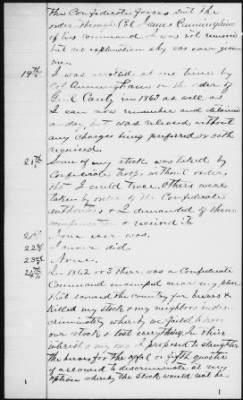 the Confederate forces sent the
order through Col James Cunningham
of his command. It was not
but no explanation why was ever given
me.
19th
I was arrested at one time by
Col Cunningham on the order of
Genl Canty in 1865 as well as
I can now remember and detained
a day, but was released without
any charges being preferred or oath
required.
21st
Some of my stock was taken by
Confederate troops without order,
that I could trace. Others were
taken by order of the Confederate
authorities & I demanded of them
& received it.
21st None ever was.
22nd I never did.
23rd None.
24th
In 1862 or 3 there was a Confederate
Command encamped near my place
that scoured the country for beeves &
killed my stock & my neighbors indis-
criminately whereby we failed to
our stock & lost everything. In this
interest & my own I proposed to slaughter
the beeves for the offal or fifth quarter
& allowed to discriminate at my
option whereby the stock would not be
1
1